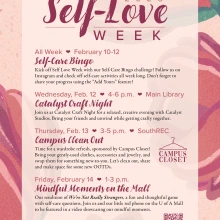 Self-Love
WEEK
All Week ♥ February 10-12
Self-Care Bingo
Kick off Self Love Week with our Self-Care Bingo challenge! Follow us on
Instagram and check off self-care activities all week long. Don't forget to
share your progress using the "Add Yours" feature!
Wednesday, Feb. 12 ♥ 4-6 p.m. ♥ Main Library
Catalyst Craft Night
Join us at Catalyst Craft Night for a relaxed, creative evening with Catalyst
Studios. Bring your friends and unwind while getting crafty together.
Thursday, Feb. 13 ♥ 3-5 p.m. ♥ SouthREC
Campus Clean Out
Time for a wardrobe refresh, sponsored by Campus Closet!
Bring your gently-used clothes, accessories and jewelry, or
swap them for something new-to-you. Let's clear out, share
and make space for some new OOTDs.
CAMPUS
CLOSET
Friday, February 14 ♥ 1-3 p.m.
Mindful Moments on the Mall
Our rendition of We're Not Really Strangers, a fun and thoughtful game
with self-care questions. Join us and our little red phone on the U of A Mall
to be featured in a video showcasing our mindful moments.